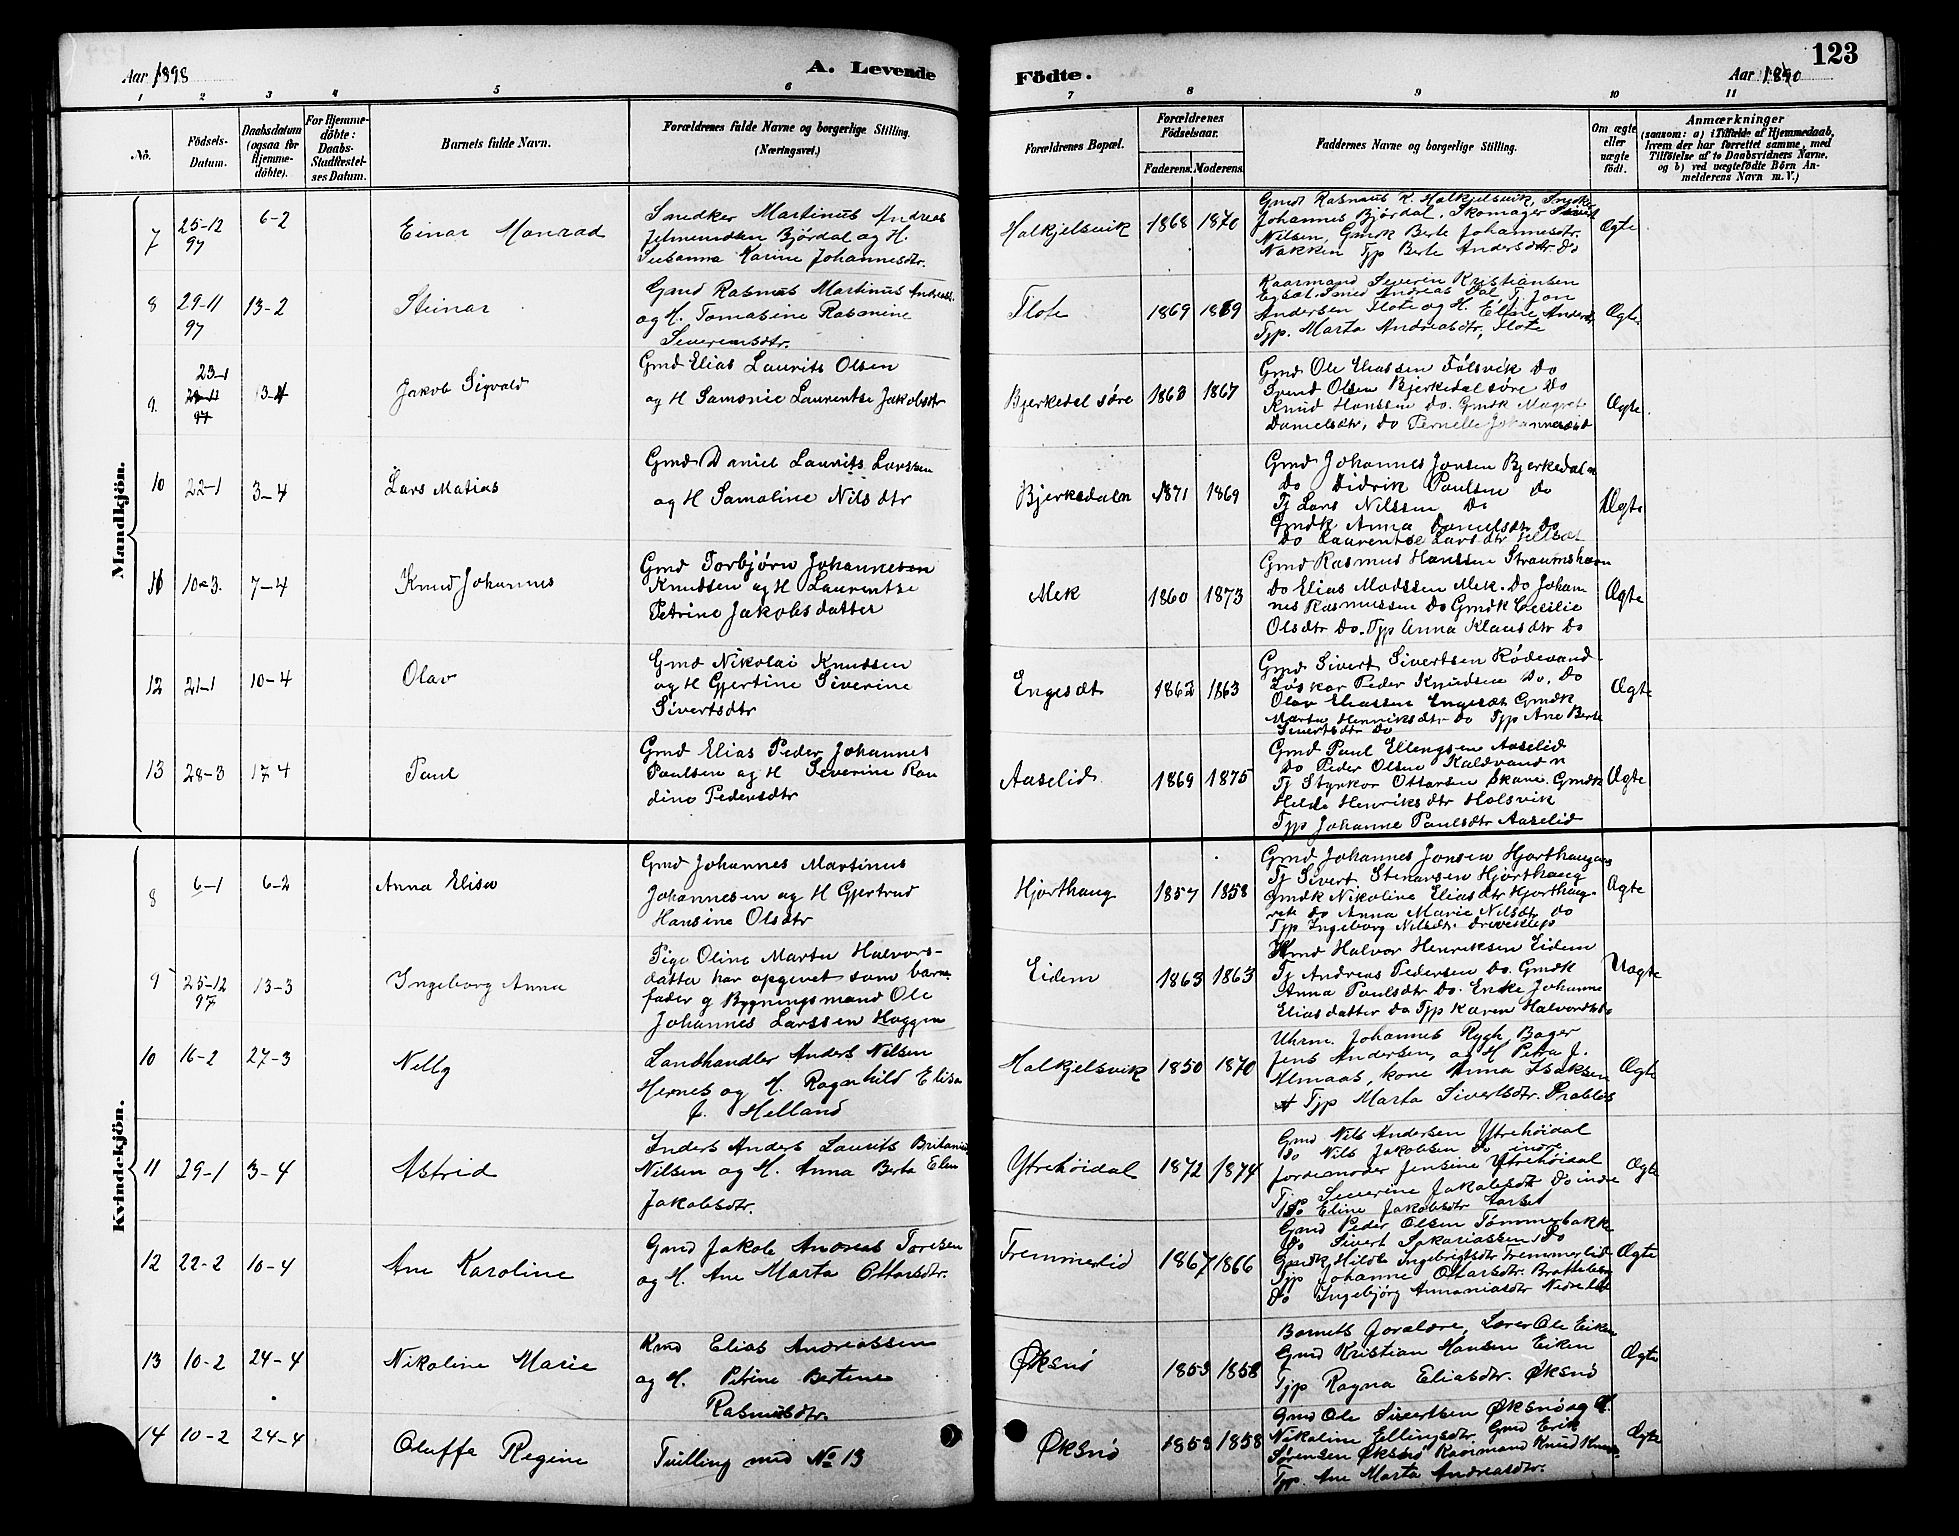 123
Aar 1898
A. Levende
Födte.
Aar 1890
1 2 3 4 5 6 7 8 9 10 11
No.
Födsels-Datum.
Daabsdatum (ogsaa for Hjemmedöbte).
For Hjemmedöbte: Daabs-Stadfestelses Datum.
Barnets fulde Navn.
Forældrenes fulde Navne og borgerlige Stilling. (Næringsvei.)
Forældrenes Bopæl.
Forældrenes Födselsaar.
Faderens. Moderens.
Faddernes Navne og borgerlige Stilling.
Om ægte eller uægte födt.
Anmærkninger
(saasom: a) i Tilfælde af Hjemmedaab, hvem der har forrettet samme, med Tilföielse af to Daabsvidners Navne, og b) ved uægtefödte Börn Anmelderens Navn m. V.)
Mandkjön.
7 25-12 97 6-2 Einar Monrad
Snedker Martinus Andreas
Jetmundsen Bjørdal og H.
Susanna Karine Johannesdtr.
Halkjelsvik 1868 1870
Gmd Rasmus R. Halkjelsvik, Snydker
Johannes Bjørdal, Skomager Sivert
Nilsen, Gmdk Berte Johannesdtr.
Nakken Tjp Berte Andersdtr Do
Ægte
8 29-11 97 13-2 Steinar
Gmd Rasmus Martinus Andreass.
og H. Tomasine Rasmine
Severinsdtr.
Flote 1869 1869
Kaarmand Severin Kristiansen
Egset. Smed Andreas Dal, Tj. Jon
Andersen Flote og H. Eline Andersdtr
Tjp. Marta Andreasdtr, Flote
Ægte
9. 23-1 13-4 Jakob Sigvald
Gmd Elias Laurits Olsen
og H Samonie Laurentse Jakobsdtr
Bjerkedal søre 1863 1867
Gmd Ole Eliassen Følsvik Do
Svend Olsen Bjerkedal søre Do
Knud Hanssen Do. Gmdk Magret
Danielsdtr, Do Pernelle Johannesdtr
Ægte.
10 22-1 3-4 Lars Matias
Gmd Daniel Laurits Larssen
og H Samoline Nilsdtr
Bjerkedaln 1871 1869
Gmd Johannes Jonsen Bjerkedaln
Do Didrik Paulsen Do
Tj Lars Nilssen Do
Gmdk Anna Danielsdtr Do
Do Laurentse Larsdtr
Ægte
11 10-3. 7-4 Knud Johannes
Gmd Torbjørn Johannesen
Knudsen og H Laurentse
Petrine Jakobsdatter
Mek 1860 1873
Gmd Rasmus Hanssen Straumshavn
Do Elias Madssen Mek. Do Johan
nes Rasmussen Do Gmdk Cecilie
Olsdtr Do. Tjp Anna Klausdtr Do
Ægte
12 21-1 10-4 Olav
Gmd Nikolai Knudsen
og H Gjertine Siverine
Sivertsdtr
Engesæt 1862 1863
Gmd Sivert Sivertsen Rødevand
Løskar Peder Knudsen Do. Do
Olav Eliassen Engesæt Gmdk
Marta Henriksdtr Do Tjp Ane Berte
Sivertsdtr Do
Ægte
13 28-3 17-4 Paul
Gmd Elias Peder Johannes
Paulsen og H Severine Ran
dine Pedersdtr
Aaselid 1869 1875
Gmd Paul Ellingsen Aaselid
Do Peder Olsen Kaldvand n
Tj Styrkor Ottarsen Skare. Gmdk
Helde Henriksdtr Holsvik
Tjp Johanne Paulsdtr Aaselid
Ægte
Kvindekjön.
8 6-1 6-2 Anna Elisa
Gmd Johannes Martinus
Johannesen og H Gjertrud
Hansine Olsdtr
Hjorthaug 1857 1858
Gmd Johannes Jonsen Hjorthaugens
Tj Sivert Stenarsen Hjorthaug
Gmdk Nikoline Eliasdtr Hjorthaug-
Do Anna Marie Nilsdtr Do
Tjp Ingeborg Nilsdtr. Driveklep
Ægte
9 25-12 97 13-3 Ingeborg Anna
Pige Oline Marta Halvors-
datter har opgivet som barne
fader g Bygningsmand Ole
Johannes Larssen Haggen
Eidem 1863 1863
Kmd Halvor Henriksen Eidem
Tj Andreas Pedersen Do. Gmdk
Anna Paulsdtr Do. Enke Johanne
Eliasdatter Do Tjp Karen Halvorsdtr Do
Uægte
10 16-2 27-3 Nelly
Landhandler Anders Nilsen
Hernes og H. Ragnhild Elisa
J. Helland
Halkjelsvik 1850 1870
Uhrm. Johannes Rygh, Bager
Jens Andersen, og H Petra J.
Almaas, kone Anna Isaksen
Tjp Marta Sivertsdtr.
Ægte
11 29-1 3-4 Astrid
Inders Anders Laurits
Nilsen og H. Anna Berta Elen
Jakobsdtr.
Ytrehøidal 1872 1874
Gmd Nils Andersen Ytrehøidal
Do Nils Jakobsen Do indre
Jordemoder Jensine Ytrehøidal
Tjp Severine Jakobsdtr Do indre
Do Eline Jakobsdtr Aarset
Ægte
12 22-2 10-4 Ane Karoline
Gmd Jakob Andreas Toresen
og H. Ane Marta Ottarsdtr.
Fremmerlid 1867 1866
Gmd Peder Olsen Tømmerbakk
Do Sivert Sakariassen Do
Gmdk Hilde Ingebrigtsdtr Fremmerlid
Tjp Johanne Ottarsdtr.
Do Ingebjørg Ananiasdtr
Ægte
13 10-2 24-4 Nikoline Marie
Kmd Elias Andreassen
og H. Petrine Bertine
Rasmusdtr.
Øksnø 1853 1858
Barnets Foraldre, Lærer Ole Eiken
Gmd Kristian Hansen Eiken
Tjp Ragna Eliasdtr. Øksnø
Ægte
14 10-2 24-4 Oluffa Regine
Tvilling med No 13
Øksnø 1853 1858
Gmd Ole Sivertsen Øksnø og H.
Nikoline Ellingsdtr. Gmd Erik
Sørensen Øksnø Kaarmand Knud
Tjp. Ane Marta Andreasdtr.
Ægte